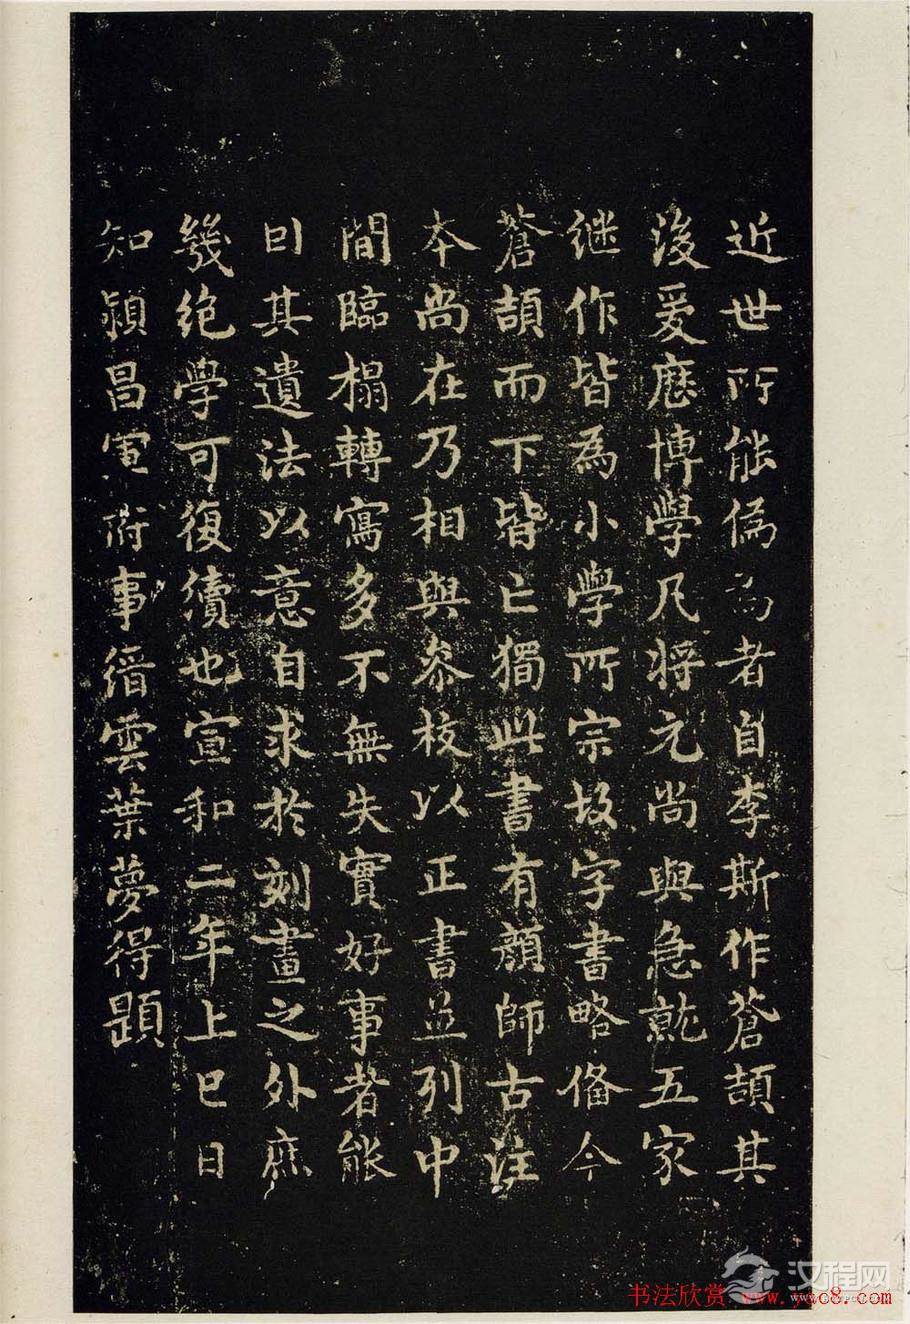 近世所能偽為者自李斯作蒼頡其
後爰歷博學凡將元尚與急就五家
继作皆為小學所宗故字書略俻今
蒼頡而下皆亡獨此書有顔師古注
本尚在乃相與叅校以正書並列中
間臨榻轉寫多不無失實好事者能
因其遺法以意自求於刻畫之外庶
幾絶學可復續也宣和二年上巳日
知潁昌軍府事縉雲葉夢得題
汉程网
书法欣赏 www.yac8.com